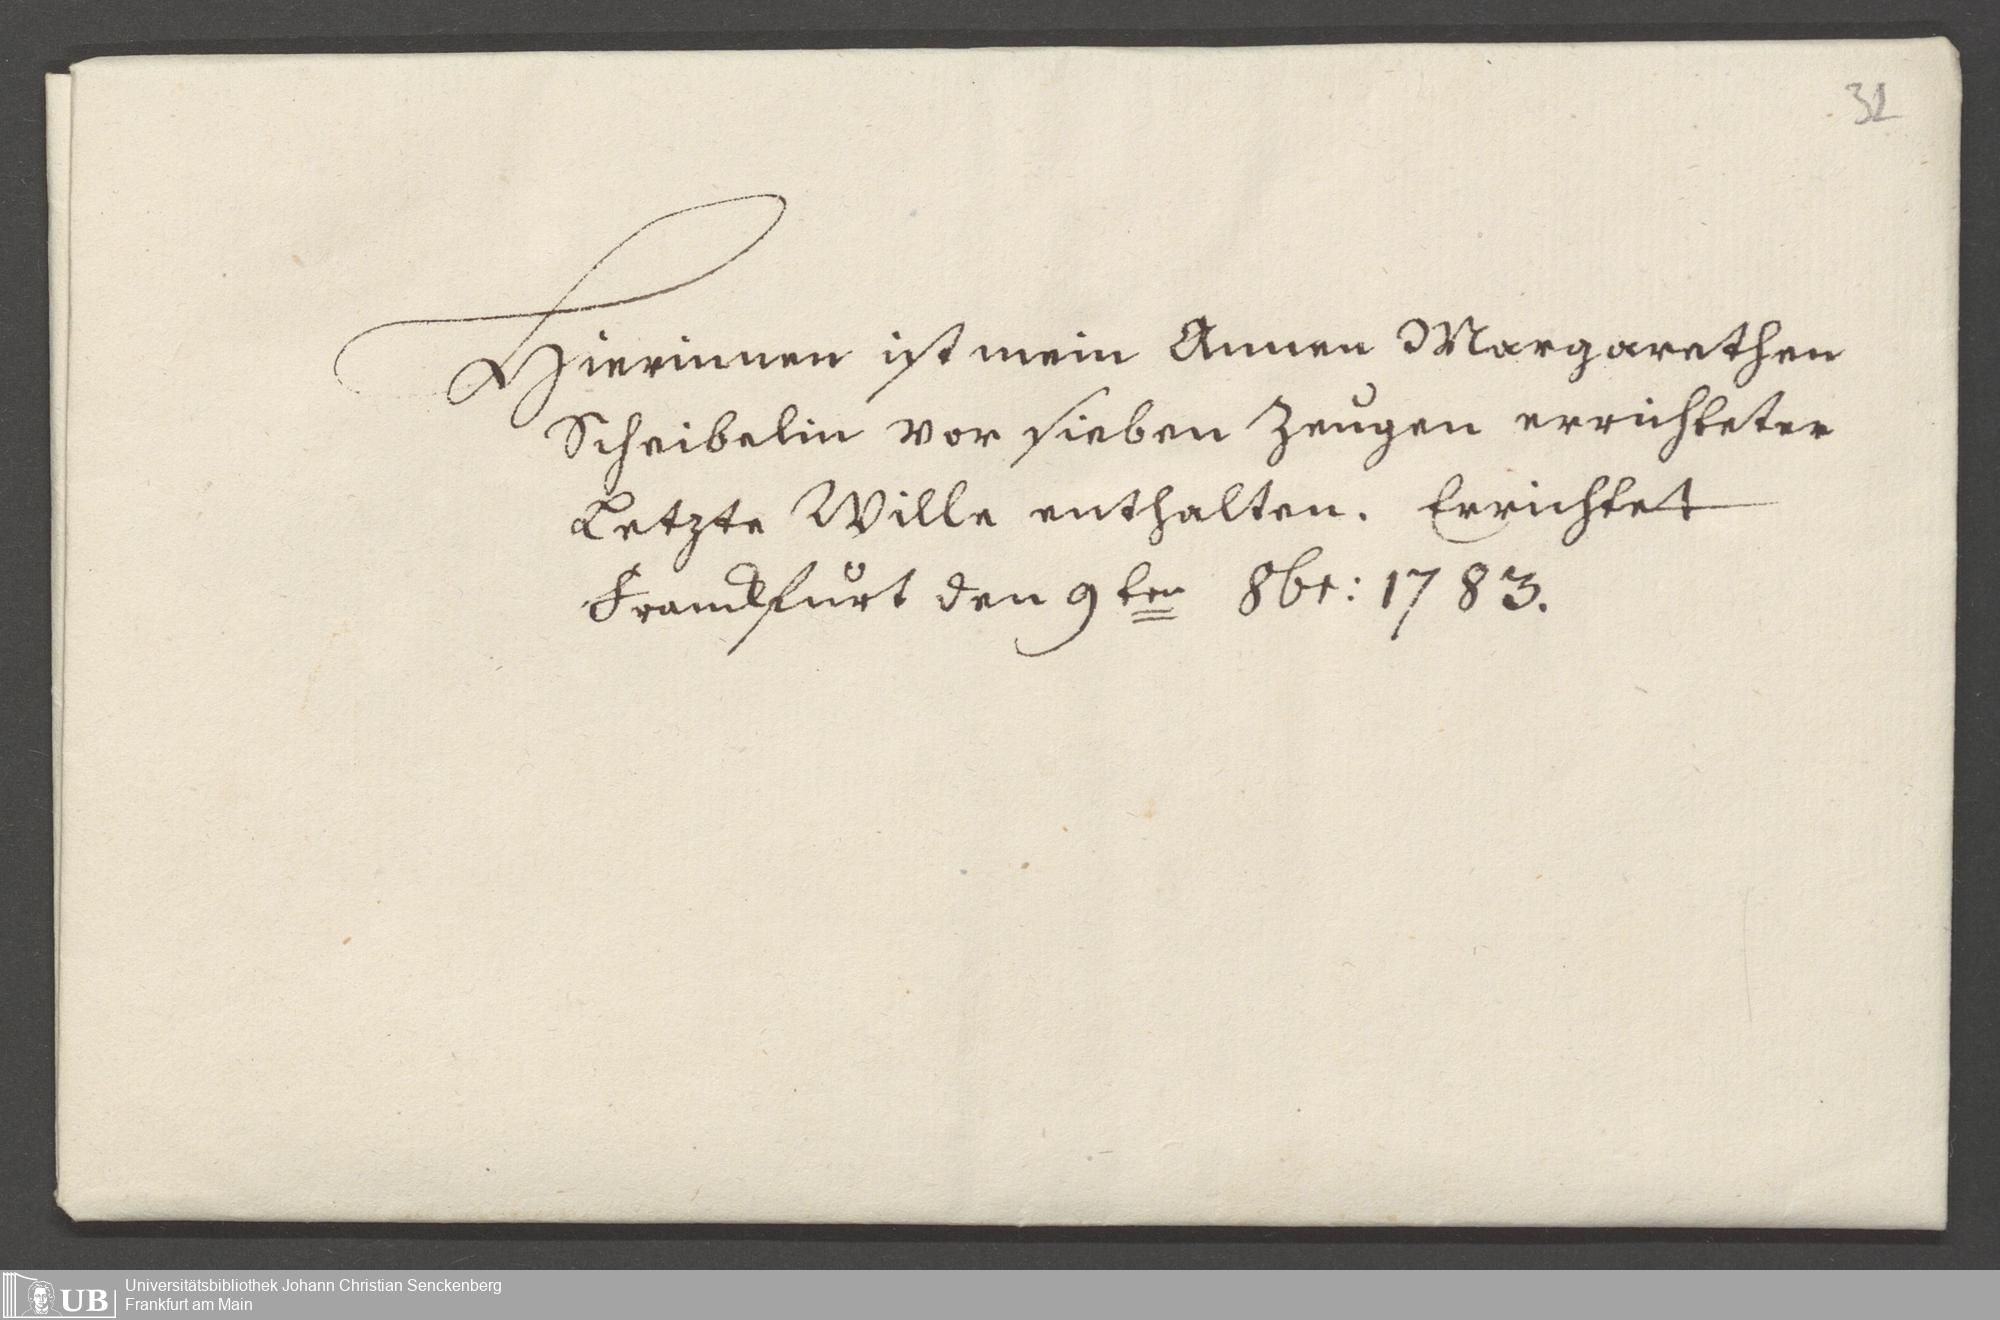 32
Hierinnen ist mein Annen Margarethen
Scheibelin vor sieben Zeugen errichteter
Letzte Wille enthalten. Errichtet
Franckfurt den 9ten 8br: 1783.
UB
Universitätsbibliothek Johann Christian Senckenberg
Frankfurt am Main